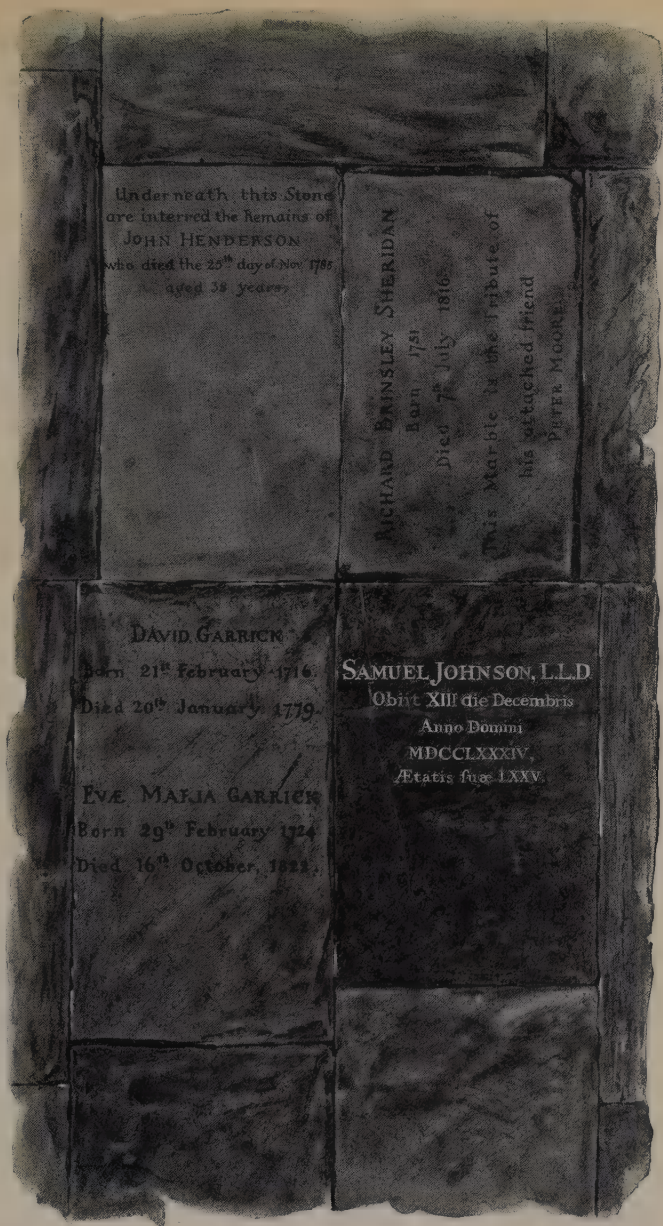 Underneath this Stone
are interred the Remains of
JOHN HENDERSON
who died the 25th day of Nov 1785
aged 38 years,
RICHARD BRINSLEY SHERIDAN
Born 1751
Died 7th July 1816
This Marble is the Tribute of
his attached friend
PETER MOORE.
DAVID GARRICK
Born 21st February 1716.
Died 20th January 1779.
EVÆ MARIA GARRICK
Born 29th February 1724
Died 16th October, 1822.
SAMUEL JOHNSON, L.L.D
Obiit XIII die Decembris
Anno Domini
MDCCLXXXIV,
Ætatis ſuæ LXXV.